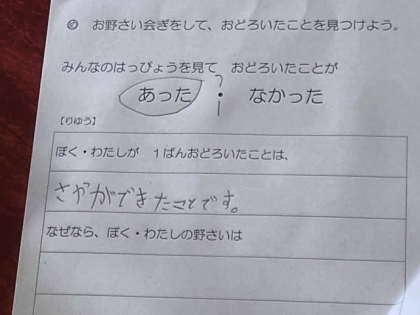 ㋱ お野さい会ぎをして、おどろいたことを見つけよう。
みんなのはっぴょうを見て おどろいたことが
あった ・ なかった
【りゆう】
ぼく・わたしが 1ばんおどろいたことは、
さやができたことです。
なぜなら、ぼく・わたしの野さいは